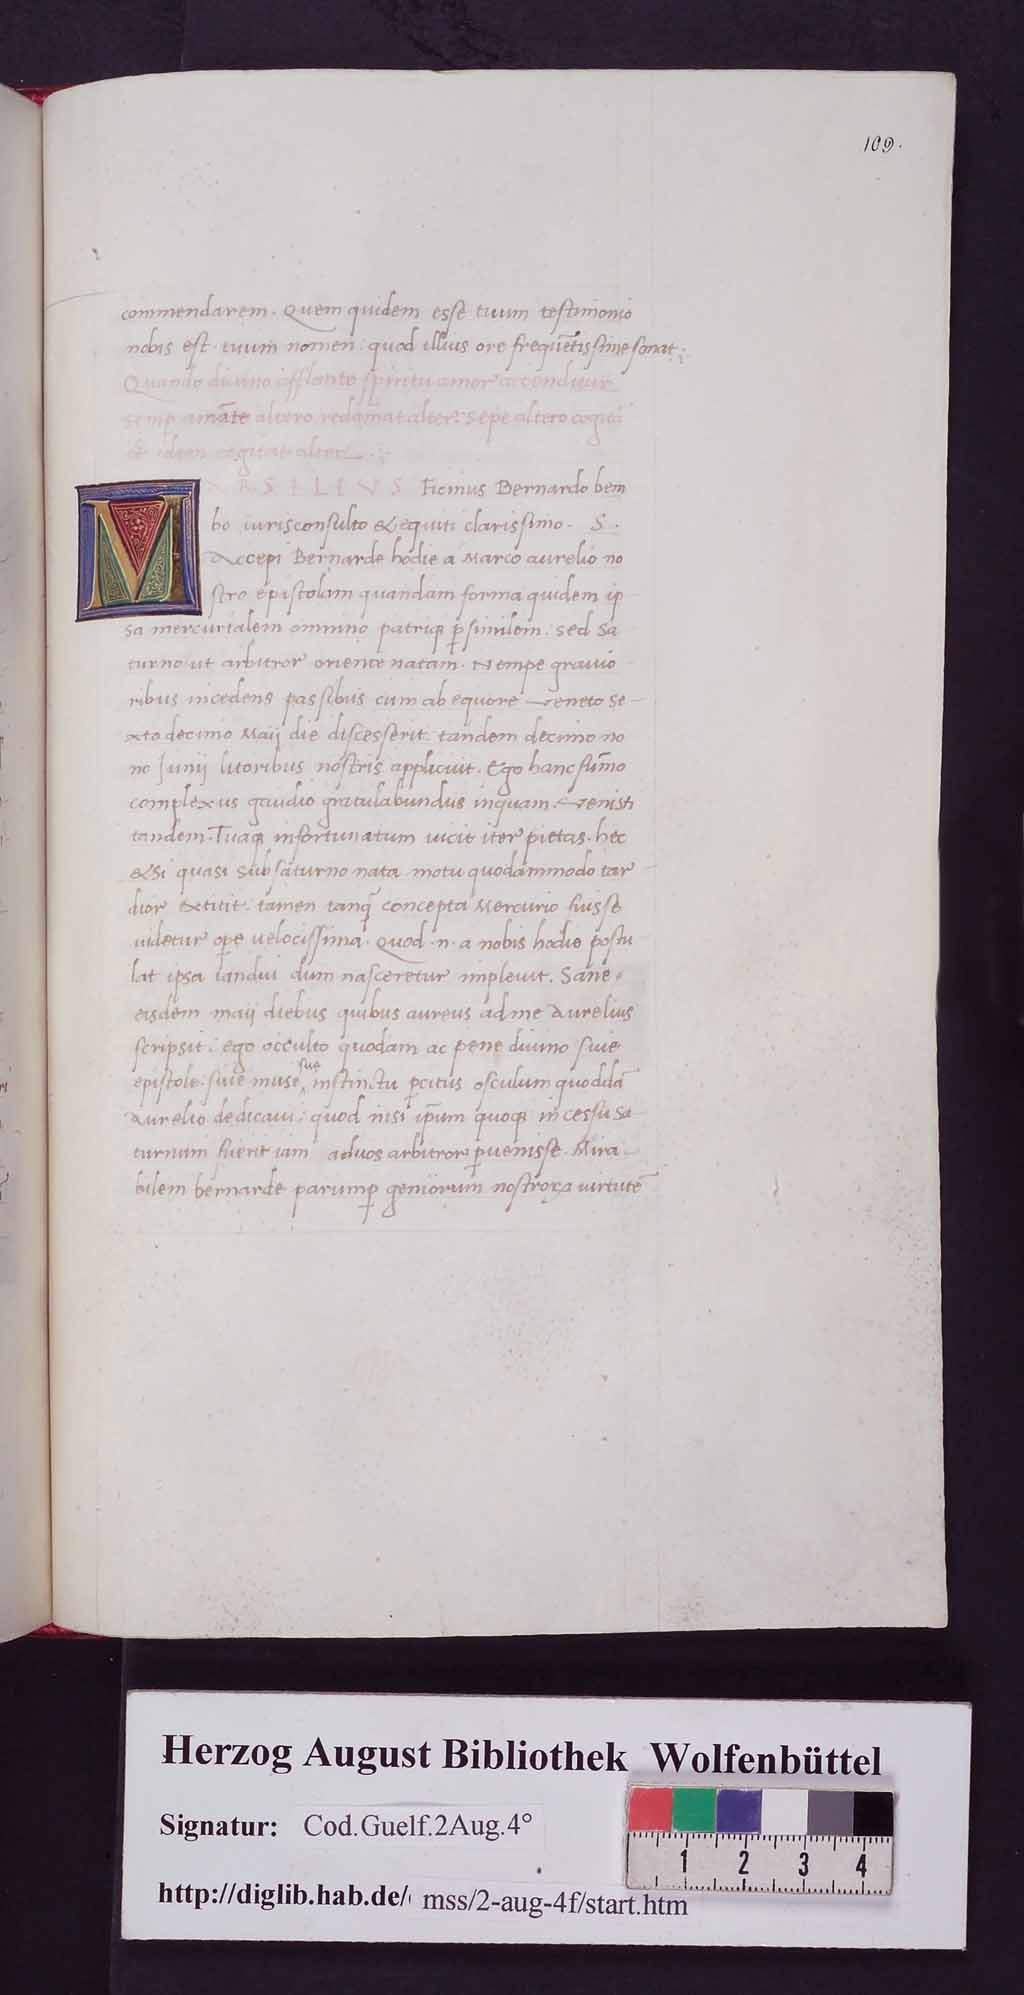 109.
commendarem. Quem quidem esse tuum testimonio
nobis est tuum nomen: quod illius ore frequētissime sonat:
Quando diuino afflante spiritu amor accenditur
semp amāte altero redamat alter: Sepe altero cogitā
te idem cogitat alter
MARSILIVS Ficinus Bernardo bem
bo iurisconsulto & equiti clarissimo. S.
Accepi Bernarde hodie a Marco aurelio no
stro epistolam quandam forma quidem ip
sa mercurialem omnino patriq; ꝑsimilem: sed Sa
turno ut arbitror oriente natam. Nempe grauio
ribus incedens passibus cum ab equore Veneto se-
xto decimo Maij die discesserit: tandem decimo no
no Junij litoribus nostris applicuit. Ego hanc sum̄o
complexus gaudio gratulabundus inquam. Venisti
tandem. Tuaq; infortunatum uicit iter pietas. hec
& si quasi sub saturno nata motu quodammodo tar
dior extitit: tamen tanq̃ concepta Mercurio fuisse
uidetur ope uelocissima. Quod .n. a nobis hodie postu
lat ipsa iandui dum nasceretur impleuit. Sane
eisdem maij diebus quibus aureus ad me Aurelius
scripsit: ego occulto quodam ac pene diuino siue
epistole: siue muse sue instinctu ꝑcitus osculum quoddā
Aurelio dedicaui: quod nisi ip̄um quoq; incessu sa
turnum fuerit iam ad uos arbitror ꝑuenisse. Mira
bilem bernarde parumꝑ geniorum nostroꝝ uirtutē
Herzog August Bibliothek Wolfenbüttel
Signatur: Cod.Guelf.2Aug.4°
http://diglib.hab.de/ mss/2-aug-4f/start.htm
1 2 3 4